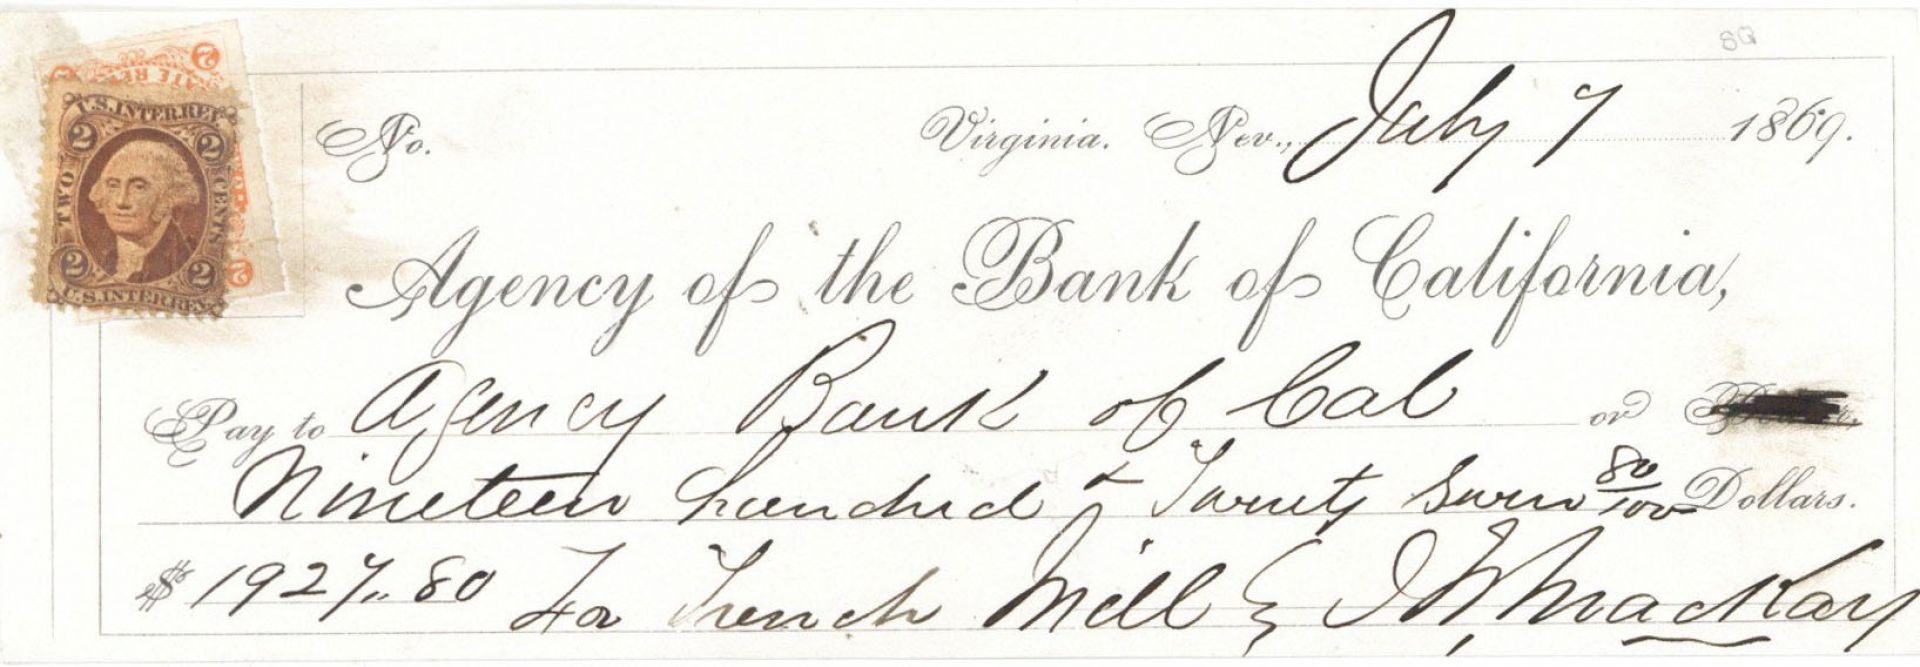 SQ
U.S. INTER. REV.
2 2
TWO CENTS
2 2
U.S. INTER. REV.
2
2
No. Virginia. Nev., July 7 1869.
Agency of the Bank of California,
Pay to Agency Bank of Cal or
Nineteen hundred & Twenty Seven 80/100 Dollars.
$ 1927.. 80 For French Mill J W Mackay